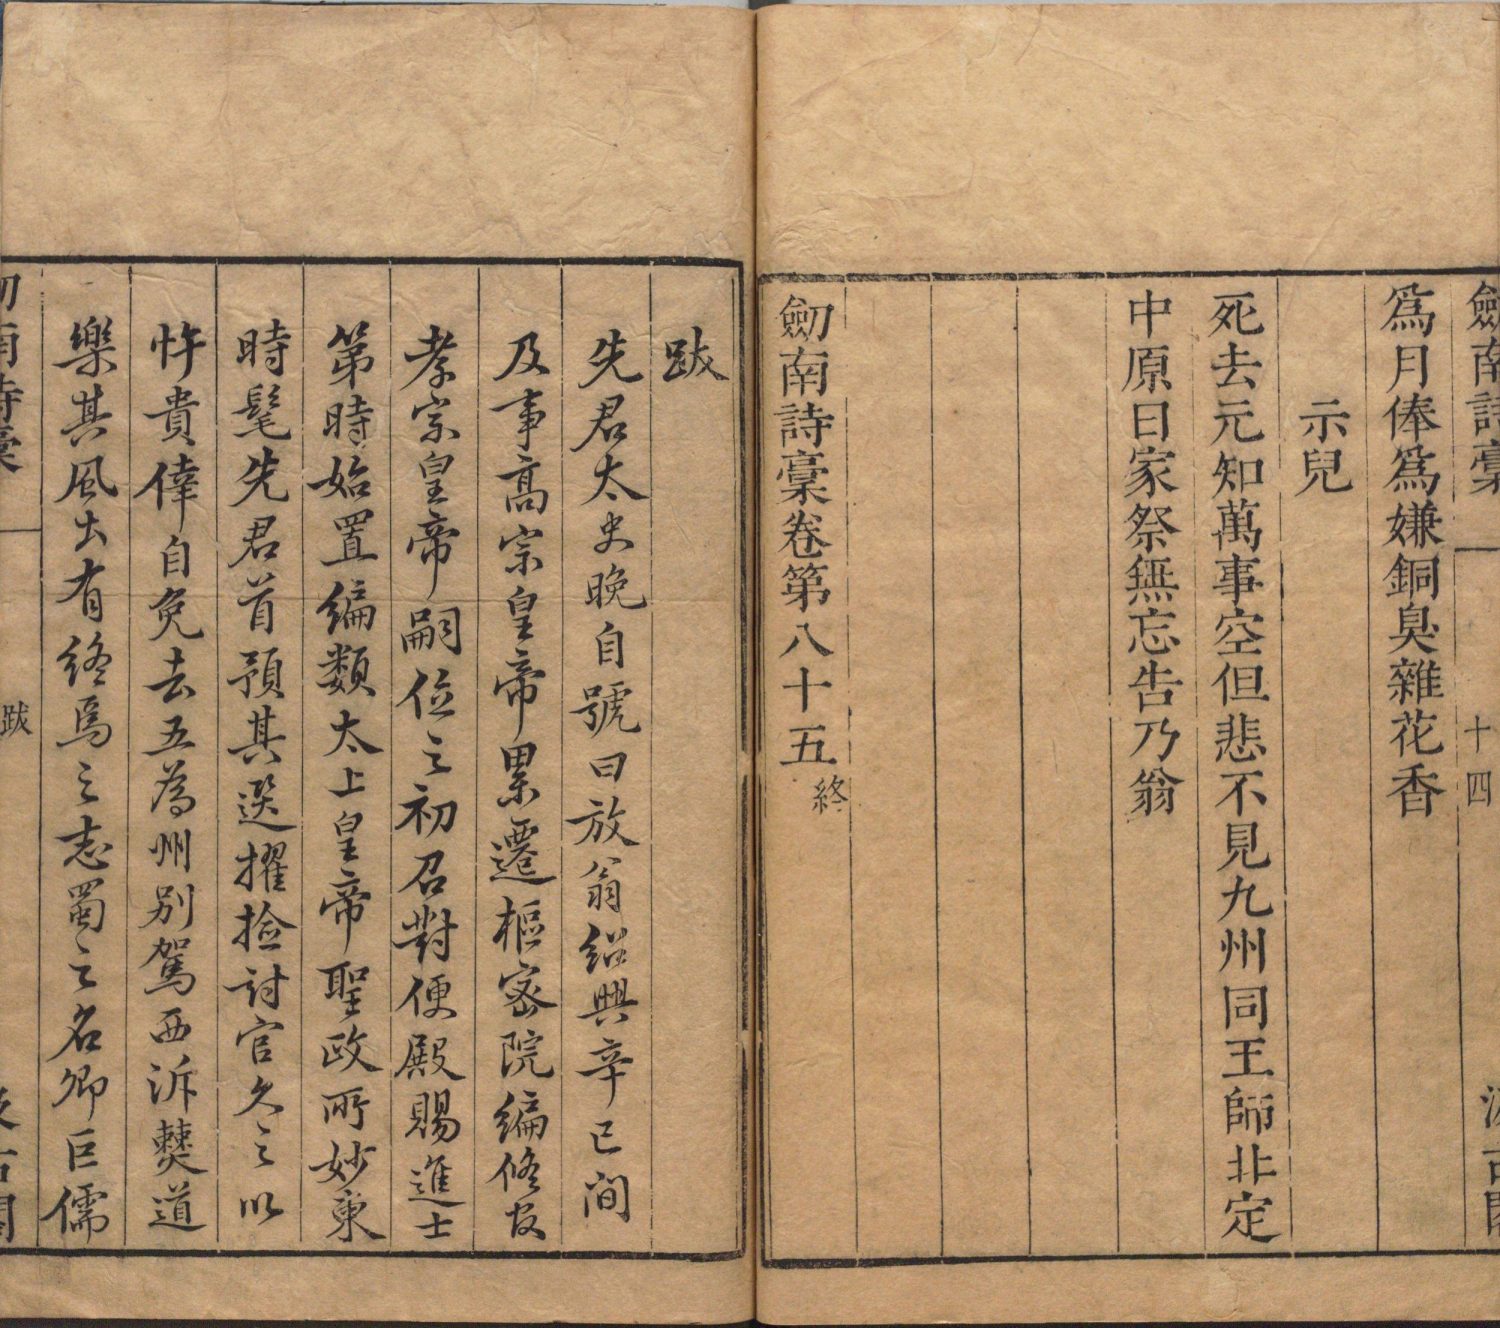 劒南詩稾
十四
爲月俸爲嫌銅臭雜花香
示兒
死去元知萬事空但悲不見九州同王師北定
中原日家祭無忘告乃翁
劒南詩稾卷第八十五終
跋
先君太史晚自號曰放翁紹興辛巳間
及事高宗皇帝累遷樞密院編修官
孝宗皇帝嗣位之初召對便殿賜進士
第時始置編類太上皇帝聖政所妙柬
時髦先君首預其選擢撿討官久之以
忤貴倖自免去五為州別駕西泝僰道
樂其風土有終焉之志蜀之名卿巨儒
跋